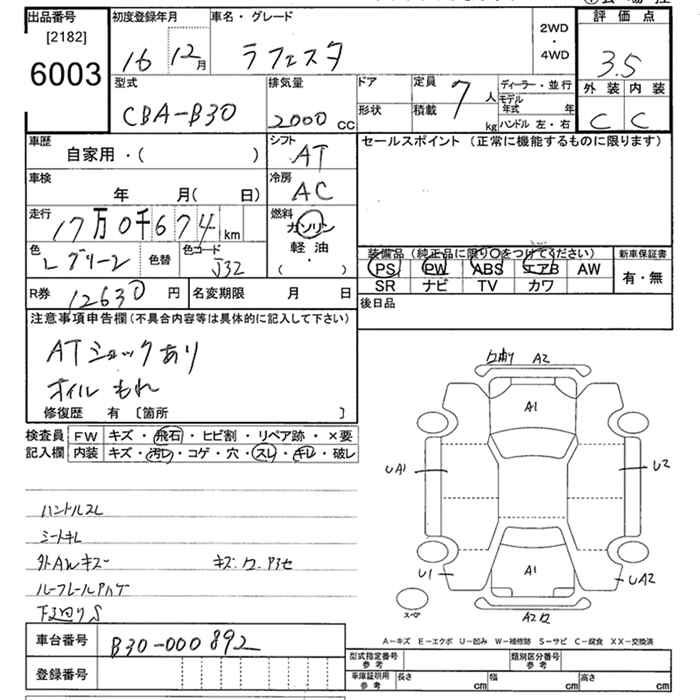 出品番号 初度登録年月 車名・グレード 2WD・4WD 評価点
[2182]
6003 16 12月 ラフェスタ 3.5
型式 排気量 ドア 定員 7人 ディーラー・並行 外装 内装
CBA-B30 2000 CC 形状 積載 kg モデル年式 年 C C
ハンドル 左・右
車歴 シフト セールスポイント (正常に機能するものに限ります)
自家用・( ) AT
車検 冷房
年 月( 日) AC
走行 燃料
17万0千674km ガソリン
色 色替 色コード 軽油
Lグリーン J32 ( ・ )
装備品 (純正品に限り○をつけてください) 新車保証書
PS PW ABS エアB AW 有・無
SR ナビ TV カワ
R券 12630円 名変期限 月 日
後日品
注意事項申告欄(不具合内容等は具体的に記入して下さい)
ATショックあり
オイルもれ
修復歴 有 〔箇所 〕
検査員 FW キズ・飛石・ヒビ割・リペア跡・×要
記入欄 内装 キズ・汚レ・コゲ・穴・スレ・キレ・破レ
ハンドルスレ
シートキレ
外AWキズ キズ.ワ.アセ
ルーフレールハゲ
下廻りS
A2
A1
UA1 U2
U1 A1 UA2
スペア
A2ワ
A-キズ E-エクボ U-凹み W-補修跡 S-サビ C-腐食 XX-交換済
車台番号 B30-000892
型式指定番号 参考 類別区分番号 参考
登録番号
車庫証明用 参考 長さ cm 幅 cm 高さ cm